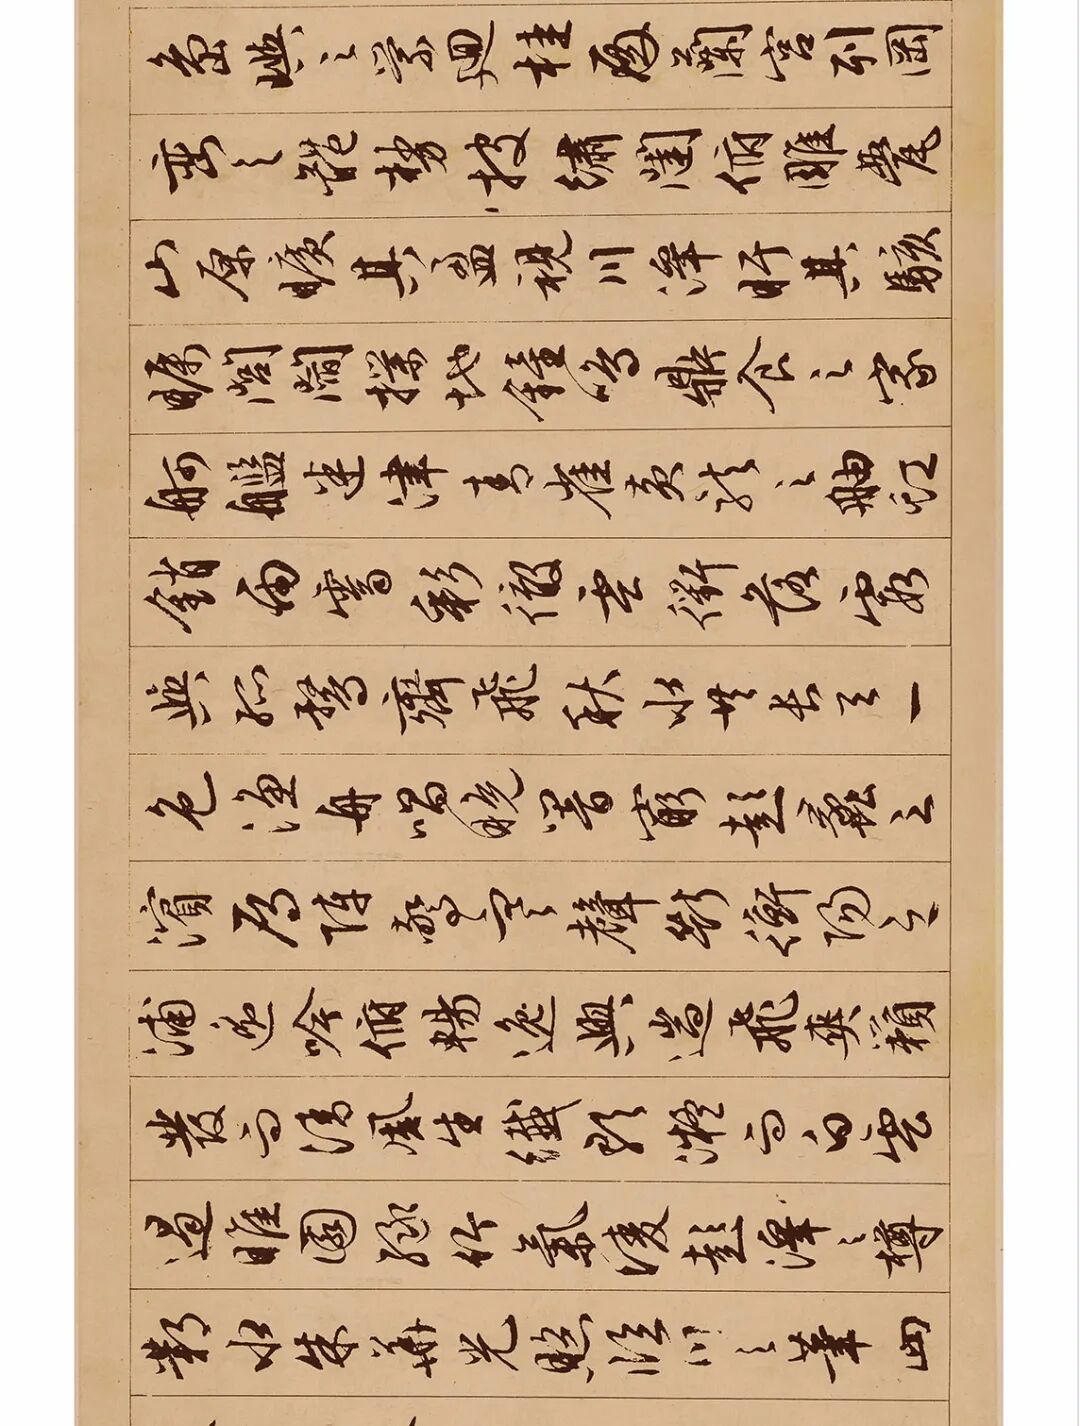 島嶼之縈迴桂殿蘭宮列岡
巒之體勢披繡闥俯雕甍
山原曠其盈視川澤盱其駭
矚閭閻撲地鐘鳴鼎食之家
舸艦迷津青雀黃龍之舳虹
銷雨霽彩徹雲衢落霞
與孤鶩齊飛秋水共長天一
色漁舟唱晚響窮彭蠡之
濱雁陣驚寒聲斷衡陽之
浦遙吟俯暢逸興遄飛爽籟
發而清風生纖歌凝而白雲
遏睢園綠竹氣凌彭澤之樽
鄴水朱華光照臨川之筆四